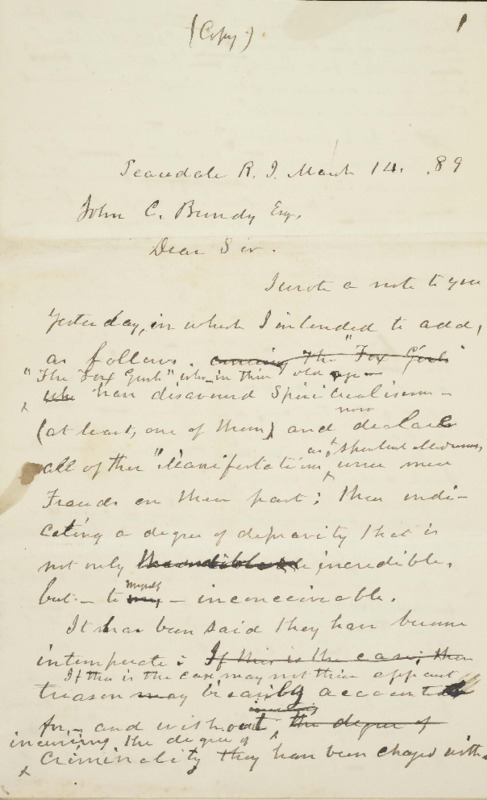 (Copy)
1
Peacedale R. I. March 14. 89
John C. Bundy Esq,
Dear Sir.
I wrote a note to you
Yesterday, in which I intended to add,
as follows. The "Fox Girls"
"The Fox Girls" who in their old age
who have disavowed Spiritualism—
(at least, one of them) and now declare
all of their "Manifestations, as Spiritual Mediums,
were mere
Frauds on their part; thus indi-
cating a degree of depravity that is
not only incredible,
but — to myself — inconceivable.
It has been said they have become
intemperate: If this is the case, then
If this is the case, may not their apparent
treason may be easily accounted
for,— and without the degree of
incurring the degree of
Criminality they have been charged with